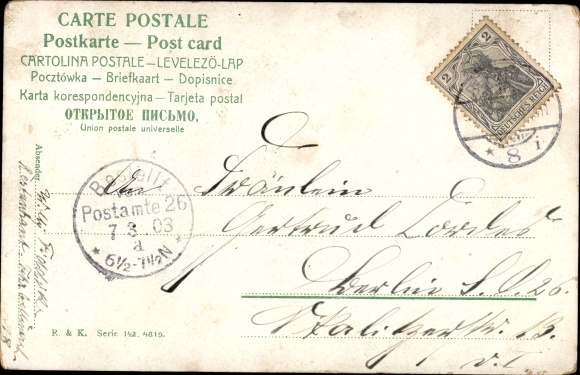 CARTE POSTALE
Postkarte — Post card
CARTOLINA POSTALE — LEVELEZÖ-LAP
Pocztówka — Briefkaart — Dopisnice
Karta korespondencyjna — Tarjeta postal
ОТКРЫТОЕ ПИСЬМО.
Union postale universelle
2
2
DEUTSCHES REICH
* 8 i
Absender:
Willy
Bestellt
Postamte 26
7 3 03
a
* 6½-7½N *
An Fräulein
Gertrud Cordes
Berlin S.O. 26.
Skalitzerstr. 13.
v. I.
R. & K. Serie 142. 4619.